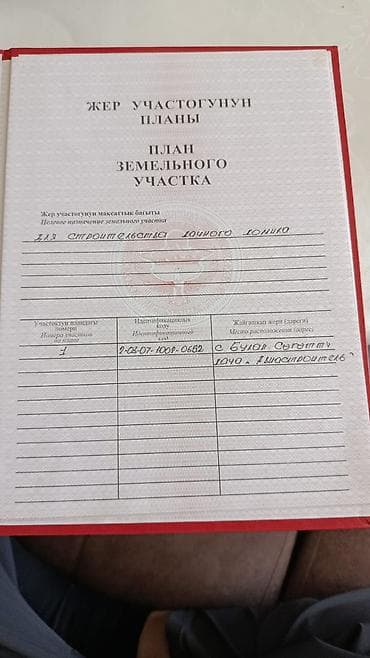 ЖЕР УЧАСТОГУНУН
ПЛАНЫ
ПЛАН
ЗЕМЕЛЬНОГО
УЧАСТКА
Жер участогунун максаттык багыты
Целевое назначение земельного участка
для строительства дачного домика
Участоктун пландагы номери
Номера участков на плане
Идентификациялык коду
Идентификационный код
Жайгашкан жери (дареги)
Место расположения (адрес)
1
7-08-07-1009-0682
с. Булан Сугетту
дача "